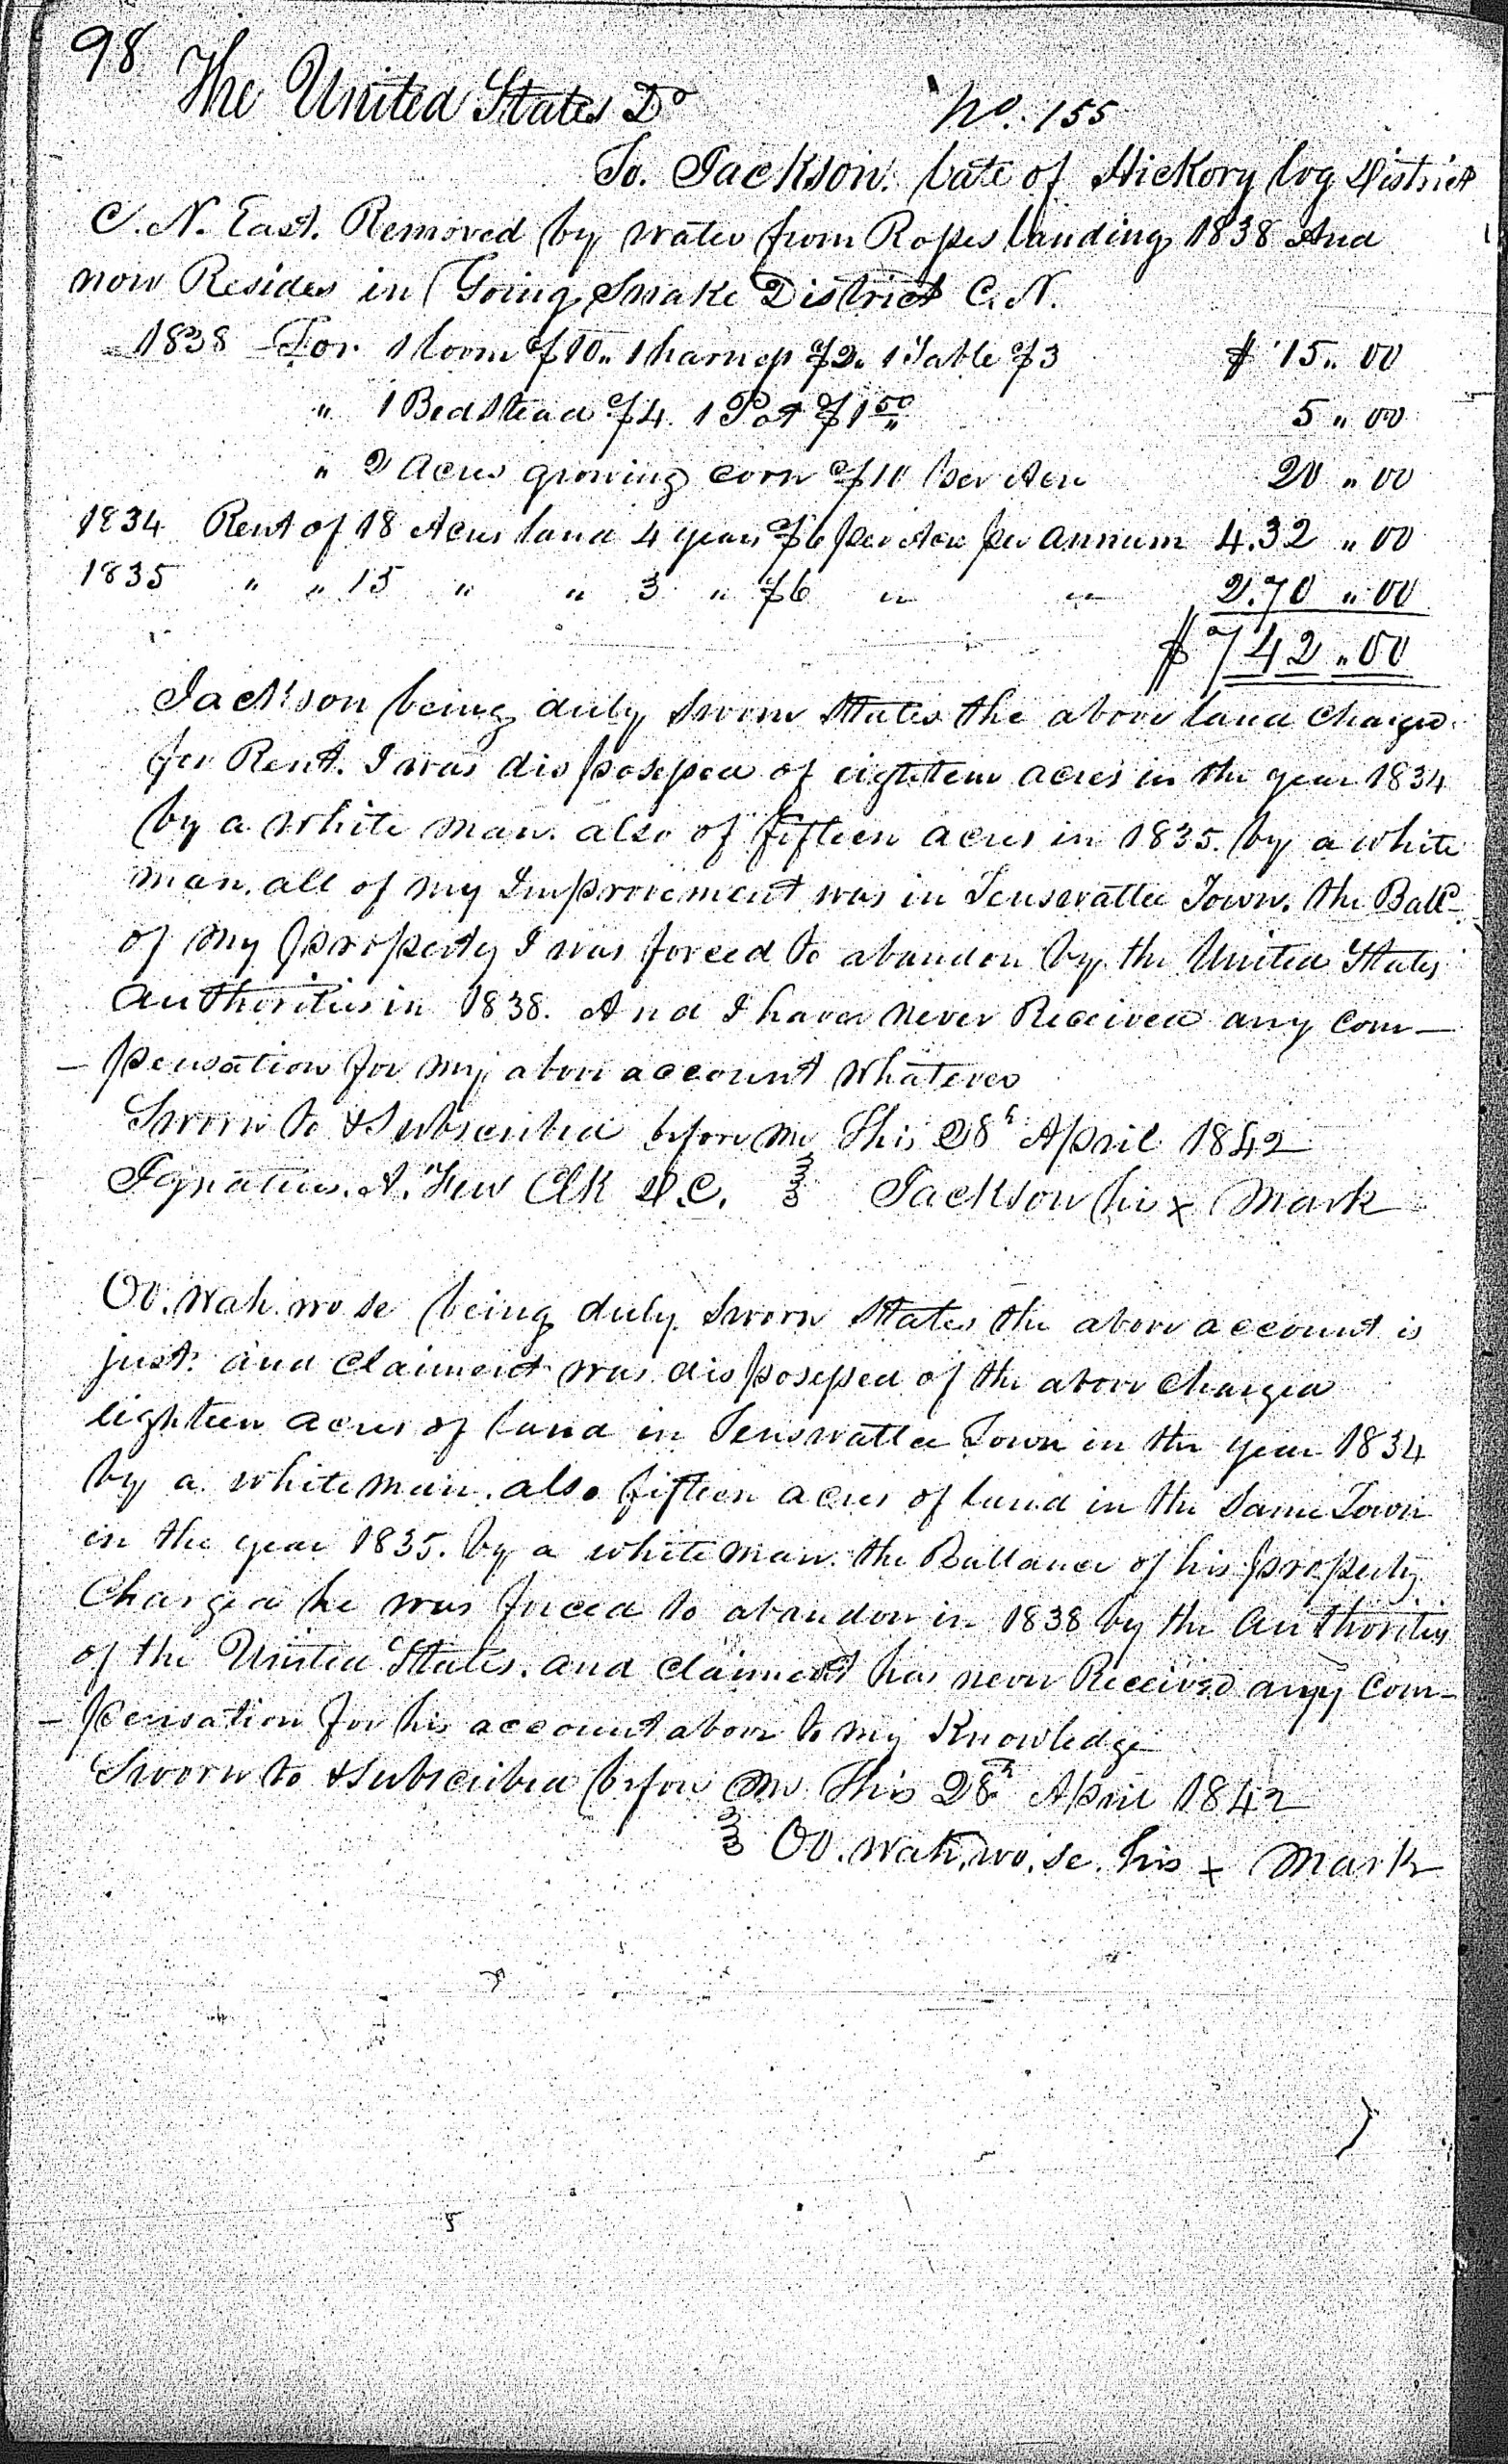 98 The United States Do No. 155
To. Jackson. late of Hickory log District
C. N. East. Removed by water from Ropes landing 1838 And
now Resides in Going Snake District C. N.
1838 For 1 loom $10.. 1 harness $2. 1 Table $3 $ 15.. 00
" 1 Bedstead $4. 1 Pot $1 50 5 .. 00
" 2 Acres growing corn $10 per Acre 20 .. 00
1834 Rent of 18 Acres land 4 years $6 per Acre per annum 4.32 .. 00
1835 " " 15 " " 3 " $6 " " 2.70 .. 00
$ 742 .. 00
Jackson being duly sworn States the above land charged
for Rent. I was dispossessed of eighteen acres in the year 1834
by a white man. also of fifteen acres in 1835. by a white
man. all of my Improvement was in Town. the Balc
of my property I was forced to abandon by the United States
authorities in 1838. And I have never Received any com—
— pensation for my above account whatever
Sworn to & Subscribed before me This 28h April 1842
Ignatius. A. Few Clk D.C. Jackson his x mark
Oo. wah. wo se being duly sworn States the above account is
just. and claiment was dispossessed of the above charged
eighteen acres of land in Town in the year 1834
by a white man. also fifteen acres of land in the same Town
in the year 1835. by a white man. the Ballance of his property
charged he was forced to abandon in 1838 by the authorities
of the United States. and claiment has never Received any com—
— pensation for his account above to my Knowledge
Sworn to & subscribed before me This 28h April 1842
Oo. wah. wo. se. his x mark